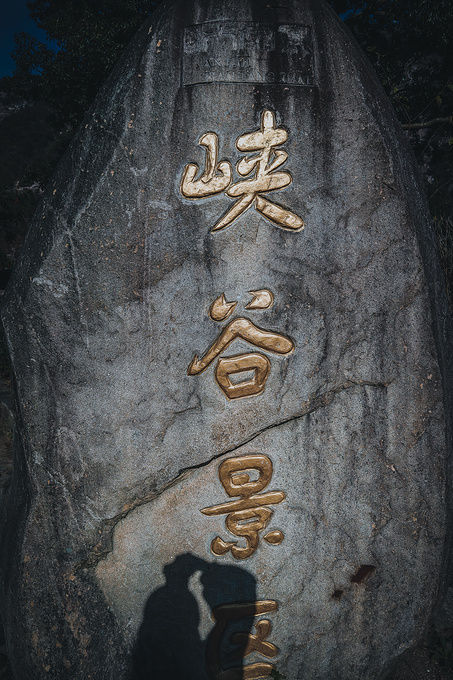 峡谷景区